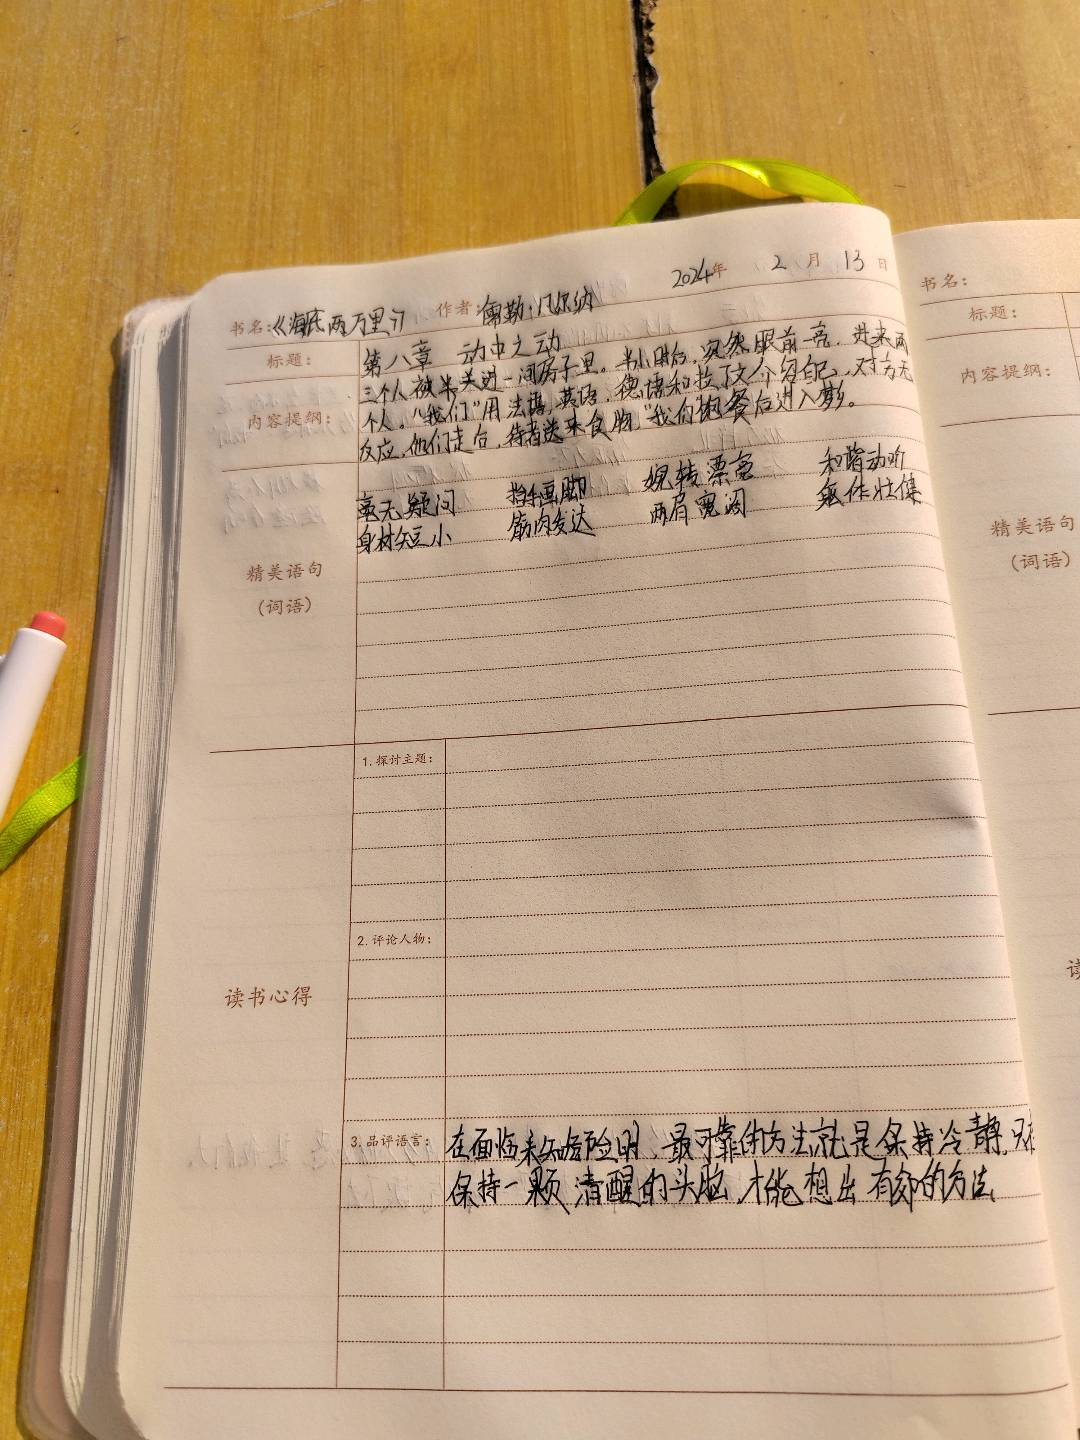 2024年 2月 13日
书名:《海底两万里》 作者:儒勒·凡尔纳
标题: 第八章 动中之动
内容提纲: 三个人被关进一间房子里。半小时后,突然眼前一亮,进来两
个人。"我们"用法语,英语,德语和拉丁文介绍自己,对方无
反应,他们走后,侍者送来食物,"我们"饱餐后进入梦乡。
毫无疑问 指手画脚 婉转漂亮 和谐动听
身材短小 筋肉发达 两肩宽阔 气体壮健
精美语句
(词语)
1.探讨主题:
2.评论人物:
读书心得
3.品评语言: 在面临未知危险时,最可靠的方法就是保持冷静,只有
保持一颗清醒的头脑,才能想出有效的方法
书名:
标题:
内容提纲:
精美语句
(词语)